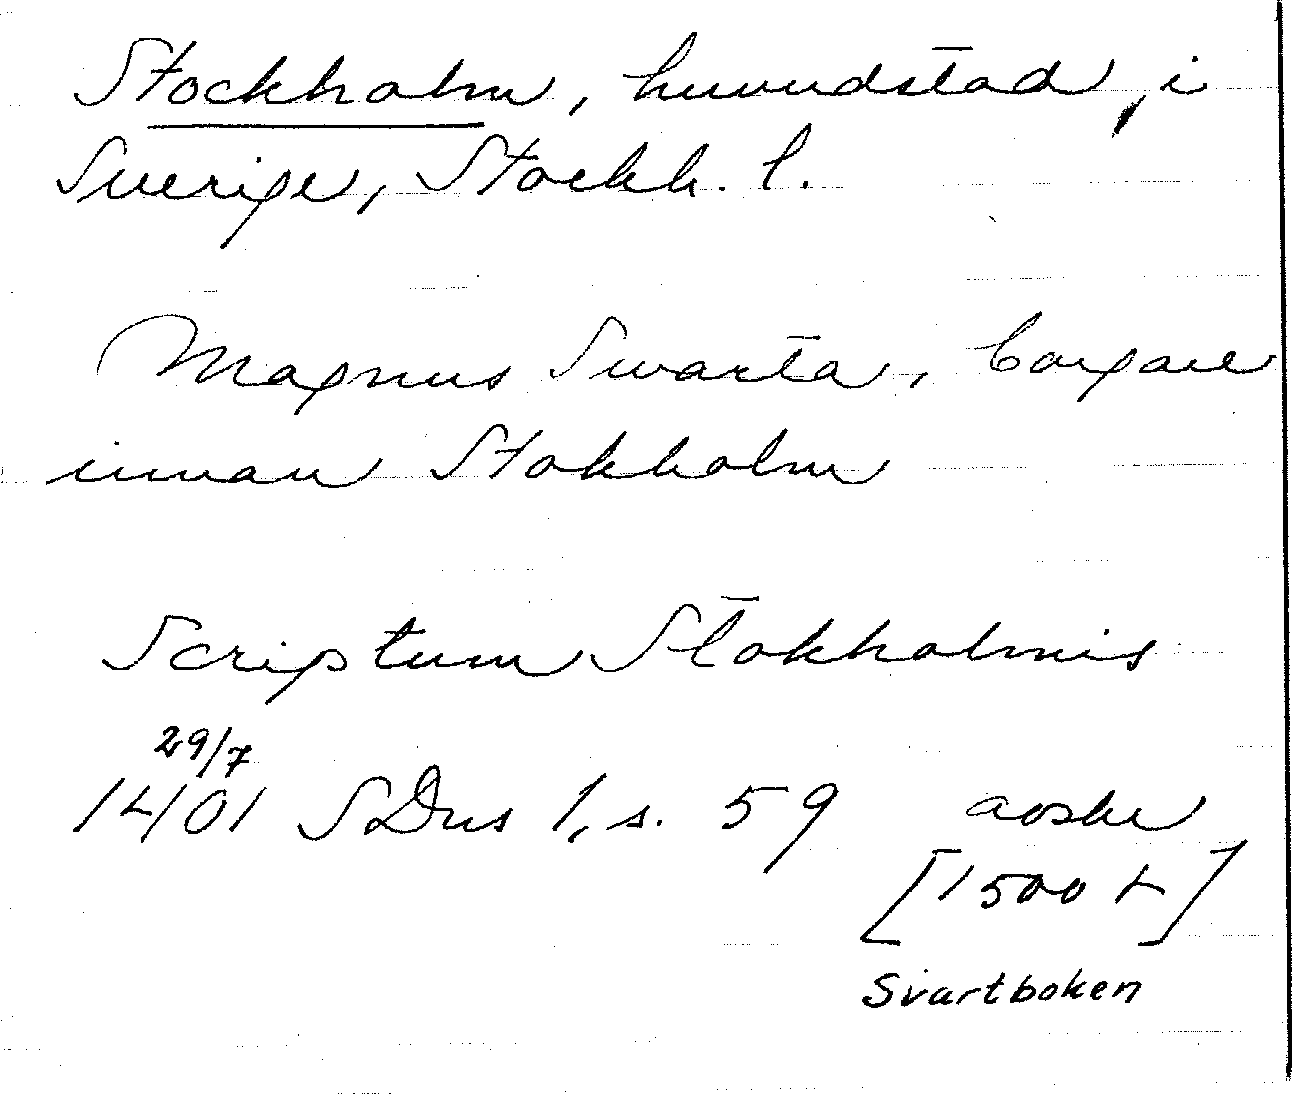 Stockholm, huvudstad, i
Sverige, Stockh. l.
Magnus Swarta, borgare
innan Stokholm
Scriptum Stokholmis
29/7
1401 SDns 1, s. 59 avskr
[1500 t]
Svartboken